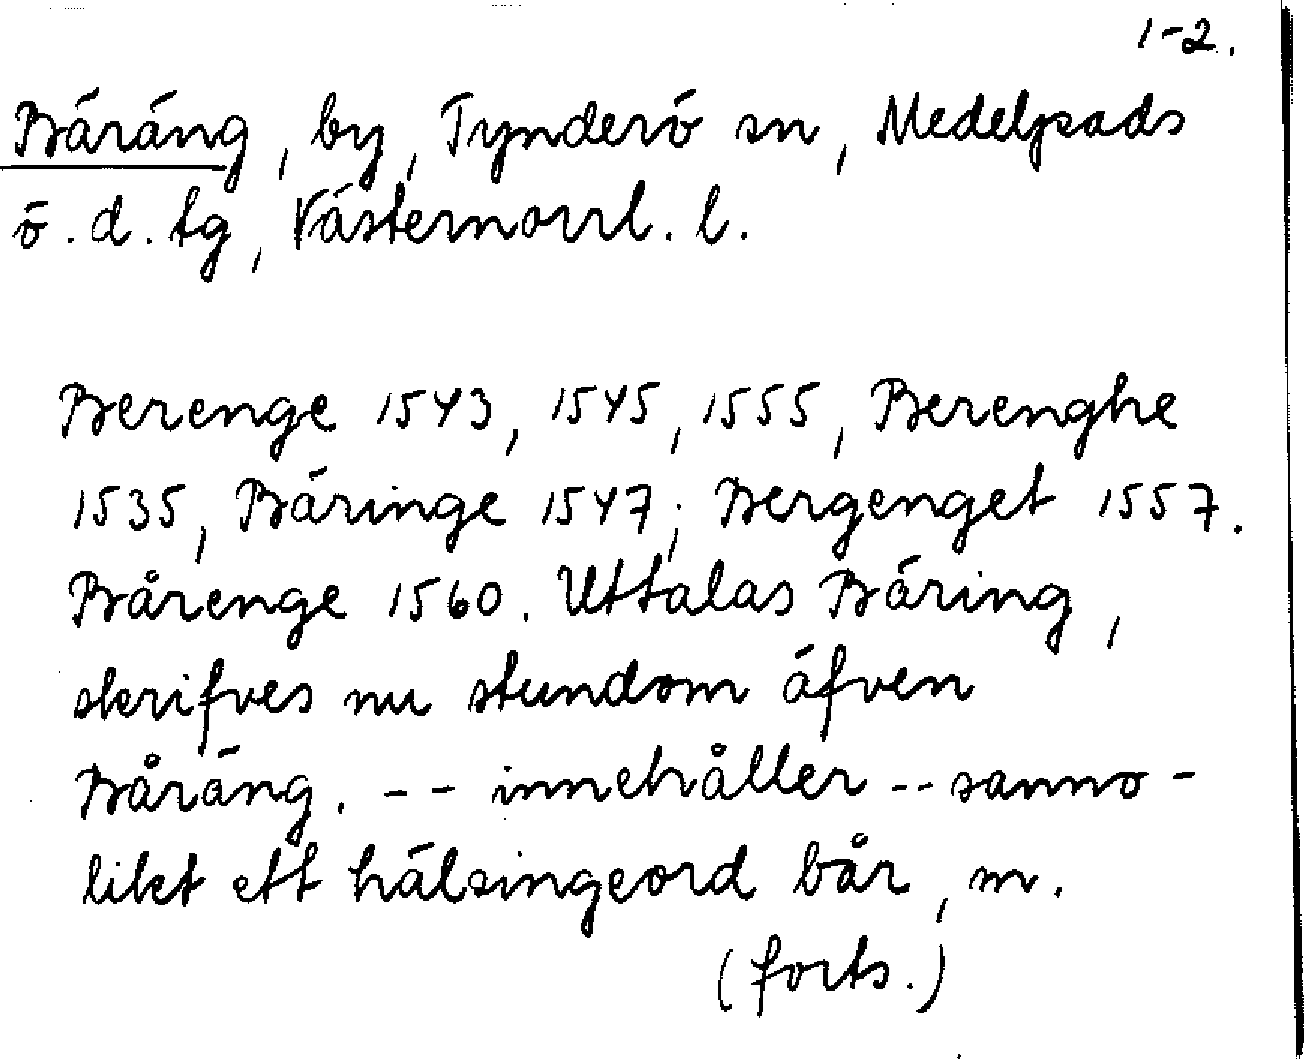 1-2.
Bäräng, by, Tynderö sn, Medelpads
ö.d.tg, Västernorrl. l.
Berenge 1543, 1545, 1555, Berenghe
1535, Bäringe 1547; Bergenget 1557.
Bårenge 1560. Uttalas Bäring,
skrifves nu stundom äfven
Båräng. -- innehåller -- sanno-
likt ett hälsingeord bår, m.
(forts.)